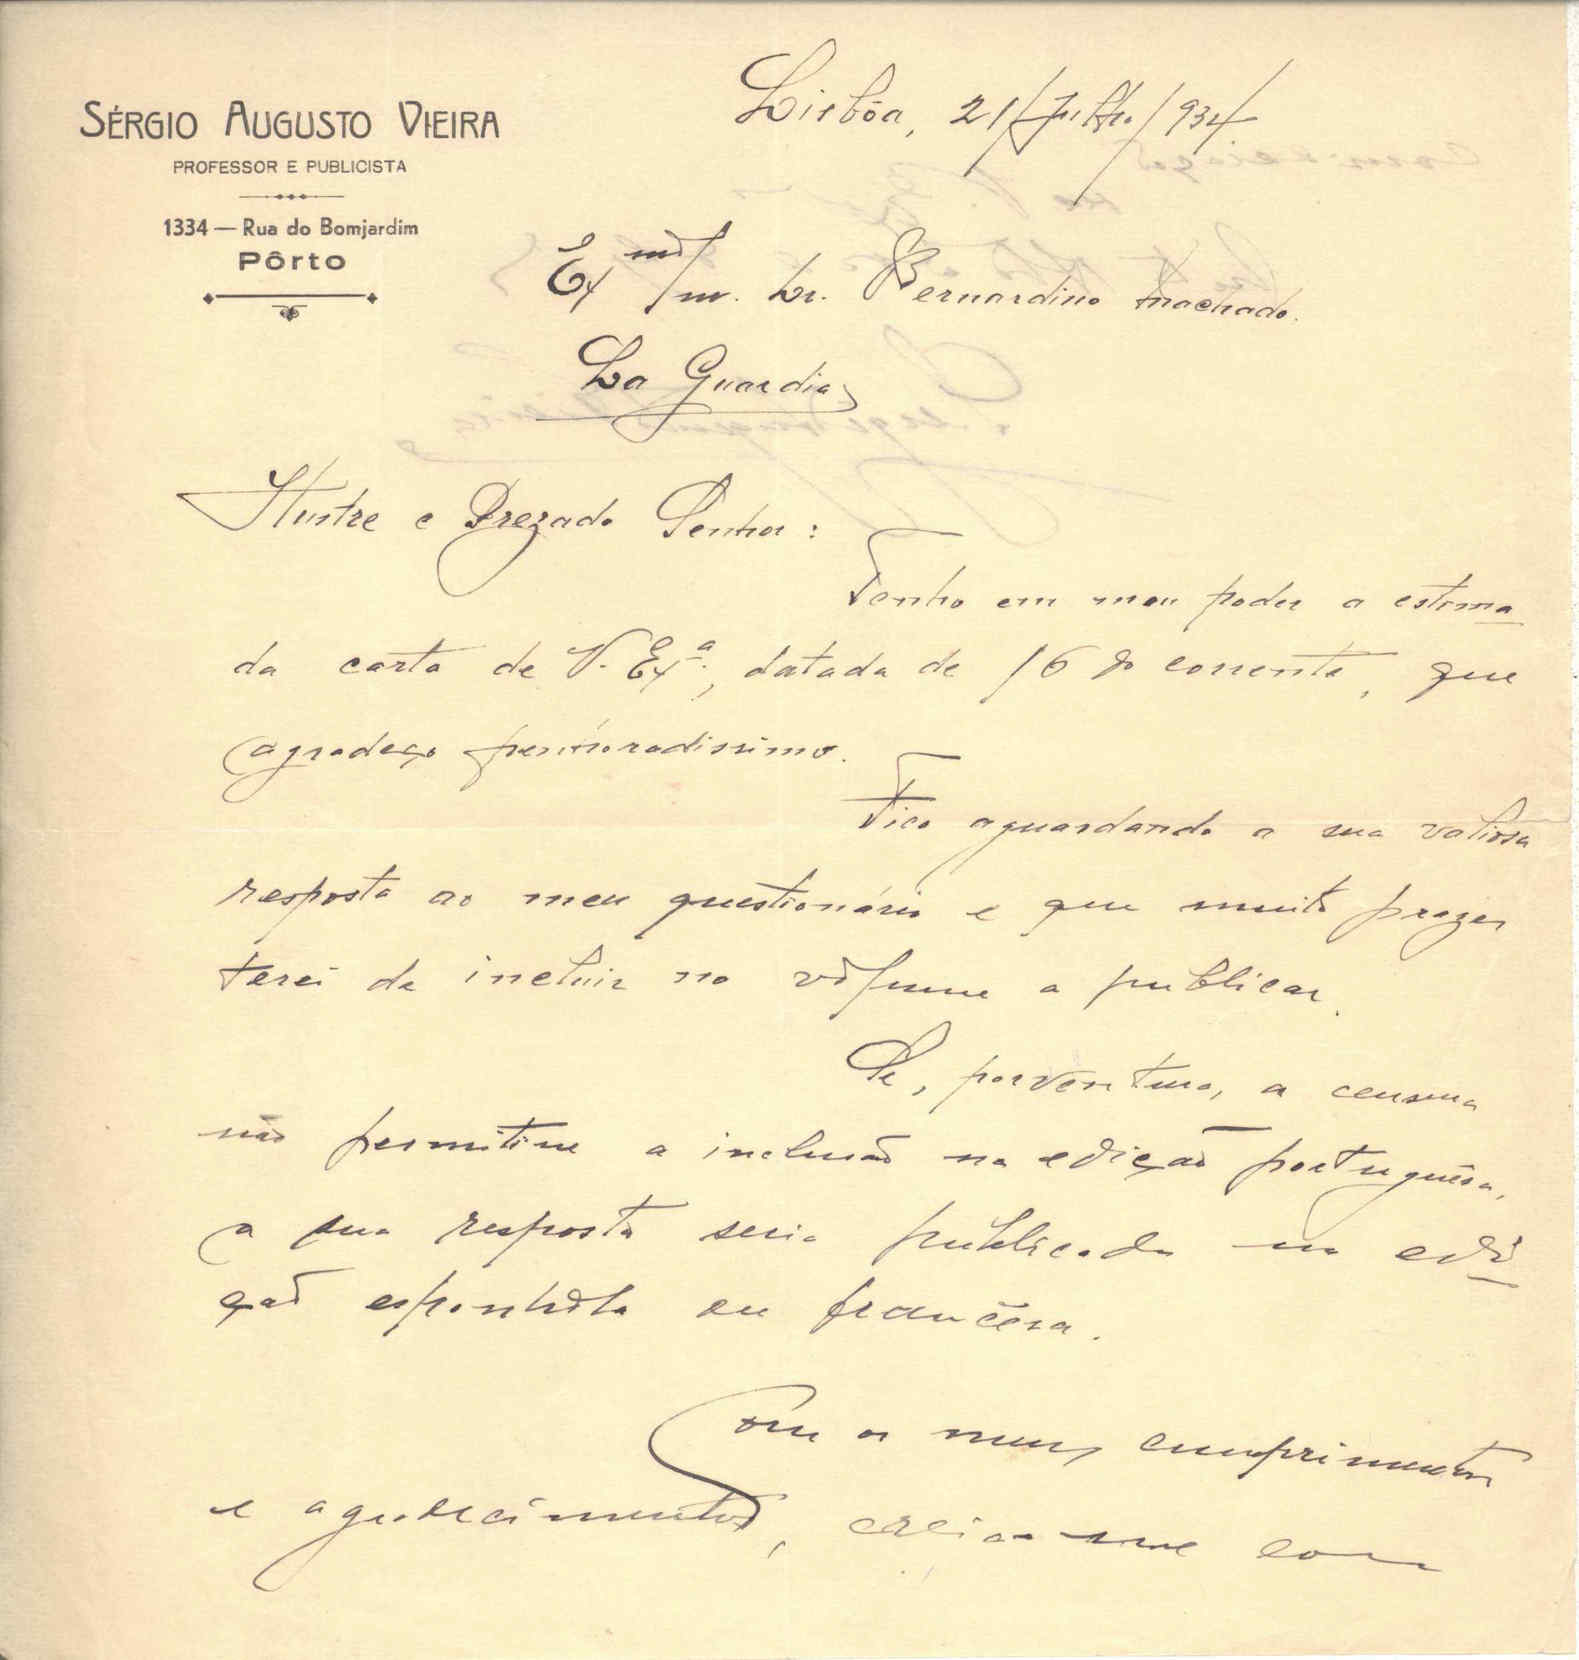 SÉRGIO AUGUSTO VIEIRA
PROFESSOR E PUBLICISTA
1334 — Rua do Bomjardim
Pôrto
Lisbôa, 21/Julho/934
Exmº Snr. Dr. Bernardino Machado.
La Guardia
Ilustre e Prezado Senhor:
Tenho em meu poder a estima
da carta de V. Exª, datada de 16 do corrente, que
agradeço penhoradissimo.
Fico aguardando a sua valiosa
resposta ao meu questionário e que muito prazer
terei de incluir no volume a publicar.
Se, porventura, a censura
não permitisse a inclusão na edição portuguêsa,
a sua resposta seria publicada na edi
ção espanhola ou francêsa.
Com os meus cumprimentos
e agradecimentos, creia-me com